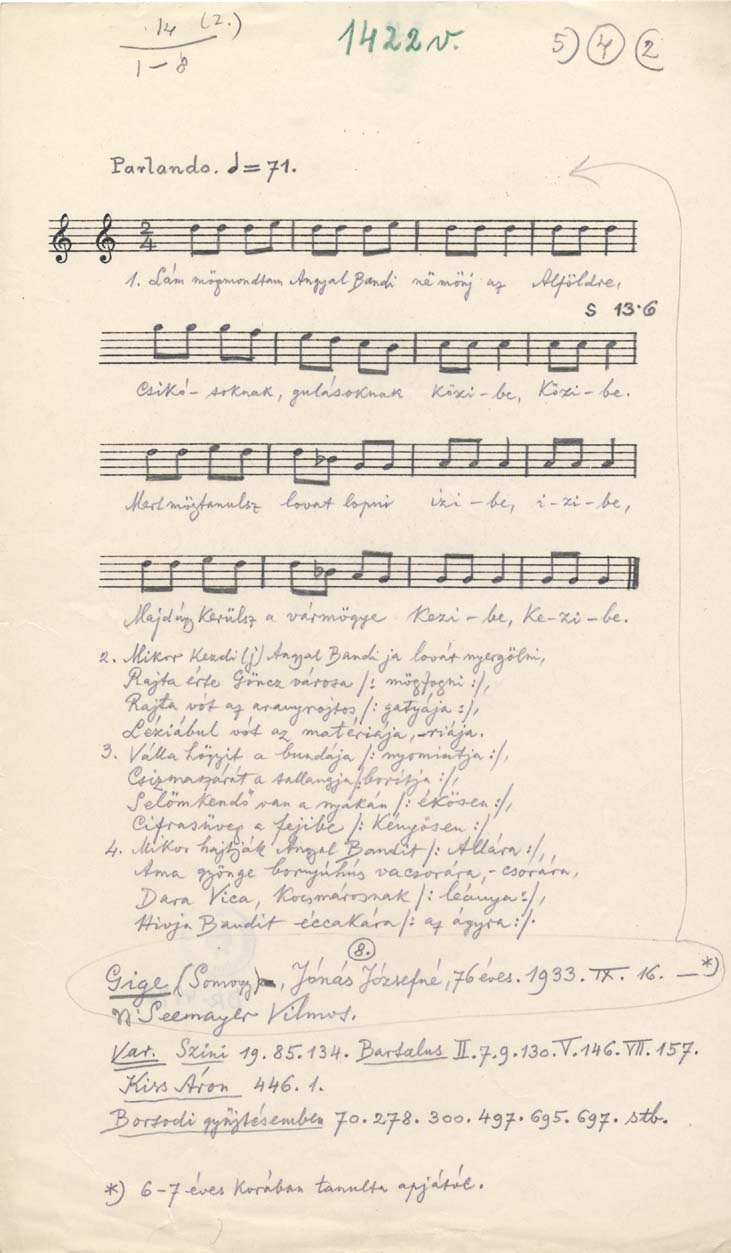 14 (2.)
1–8
1422 v.
5) 4 2
Parlando. ♩=71.
2/4
1. Lám mögmondtam Angyal Bandi në mönj az Alföldre,
S 13·6
Csikó-soknak, gulásoknak közi-be, Közi-be.
Mert mögtanulsz lovat lopni izi-be, i-zi-be,
Majd így Kerülsz a vármögye Kezi-be, Ke-zi-be.
2. Mikor Kezdi (j) Angyal Bandi ja lovát nyergölni,
Rajta érte Göncz városa /: mögfogni :/,
Rajta vót az aranyrojtos /: gatyája :/,
Léziábul vót az matériája, -riája.
3. Válla högyit a bundája /: nyomintja :/,
Csizmaszárát a sallangja /: borítja :/,
Selömkendő van a nyakán /: ékösen :/,
Cifrasüveg a fejibe /: Kényösen :/
4. Mikor hajtják Angyal Bandit /: Allára :/,
Ama gyönge bornyúhús vacsorára, -csorára,
Dara Vica, Kocsmárosnak /: leánya :/,
Hivja Bandit éccakára /: az ágyra :/.
8.
Gige (Somogy), Jónás Józsefné, 76 éves. 1933. IX. 16. — *)
Seemayer Vilmos.
Var. Szini 19. 85. 134. Bartalus II. 7. 9. 130. V. 146. VII. 157.
Kiss Áron 446. 1.
Borsodi gyüjtésemben 70. 278. 300. 497. 695. 697. stb.
*) 6–7 éves Korában tanulta apjától.